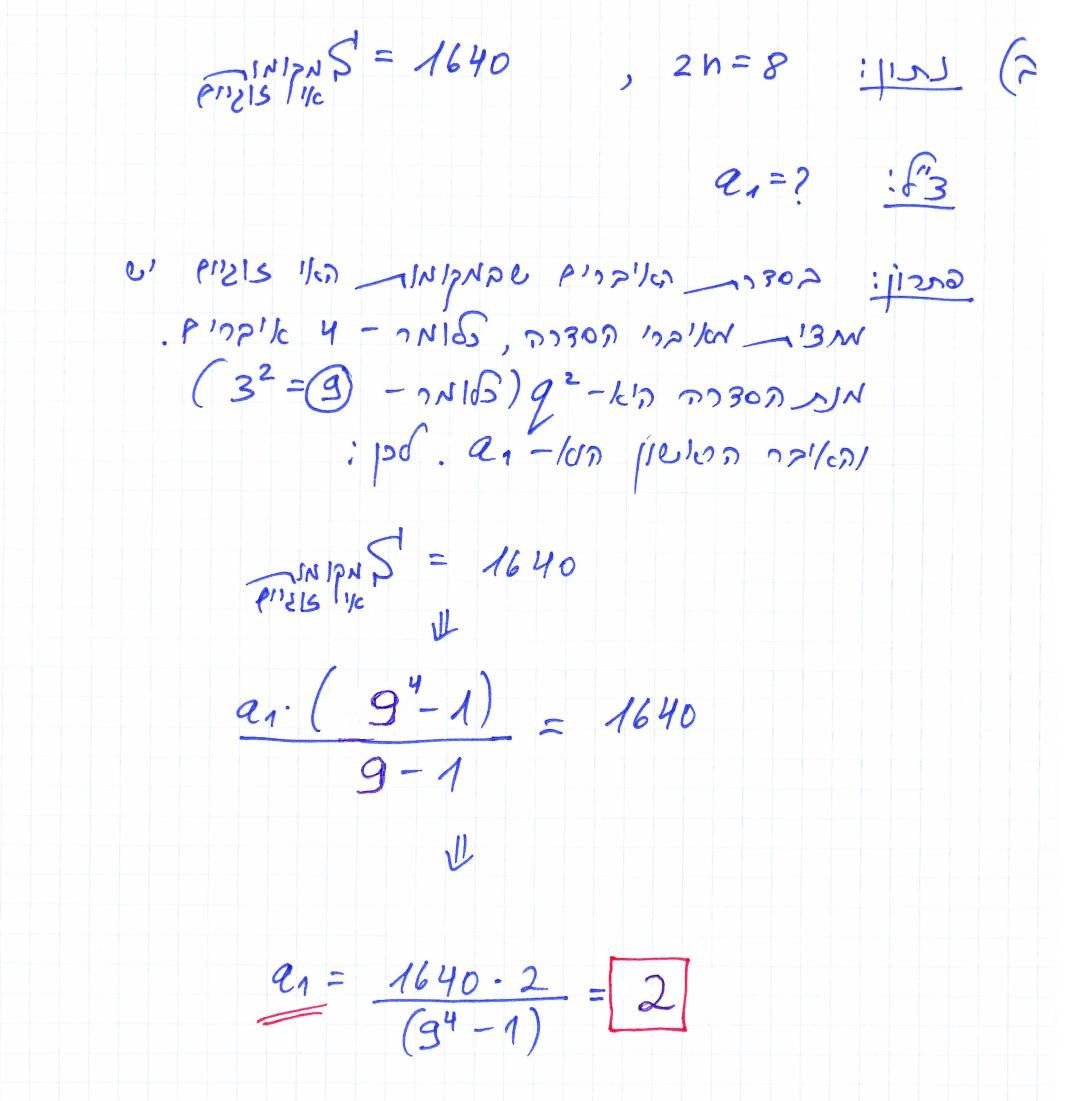 ב) נתון: 2n = 8 , S מקומות אי זוגיים = 1640
צ"ל: a₁ = ?
פתרון: בסדרת האיברים שבמקומות האי זוגיים יש
מחצית מאיברי הסדרה, כלומר - 4 איברים.
מנת הסדרה היא - q² (כלומר - 3² = 9)
והאיבר הראשון הוא - a₁. לכן:
S מקומות אי זוגיים = 1640
⇓
a₁·(9⁴ - 1) / (9 - 1) = 1640
⇓
a₁ = 1640 · 2 / (9⁴ - 1) = 2